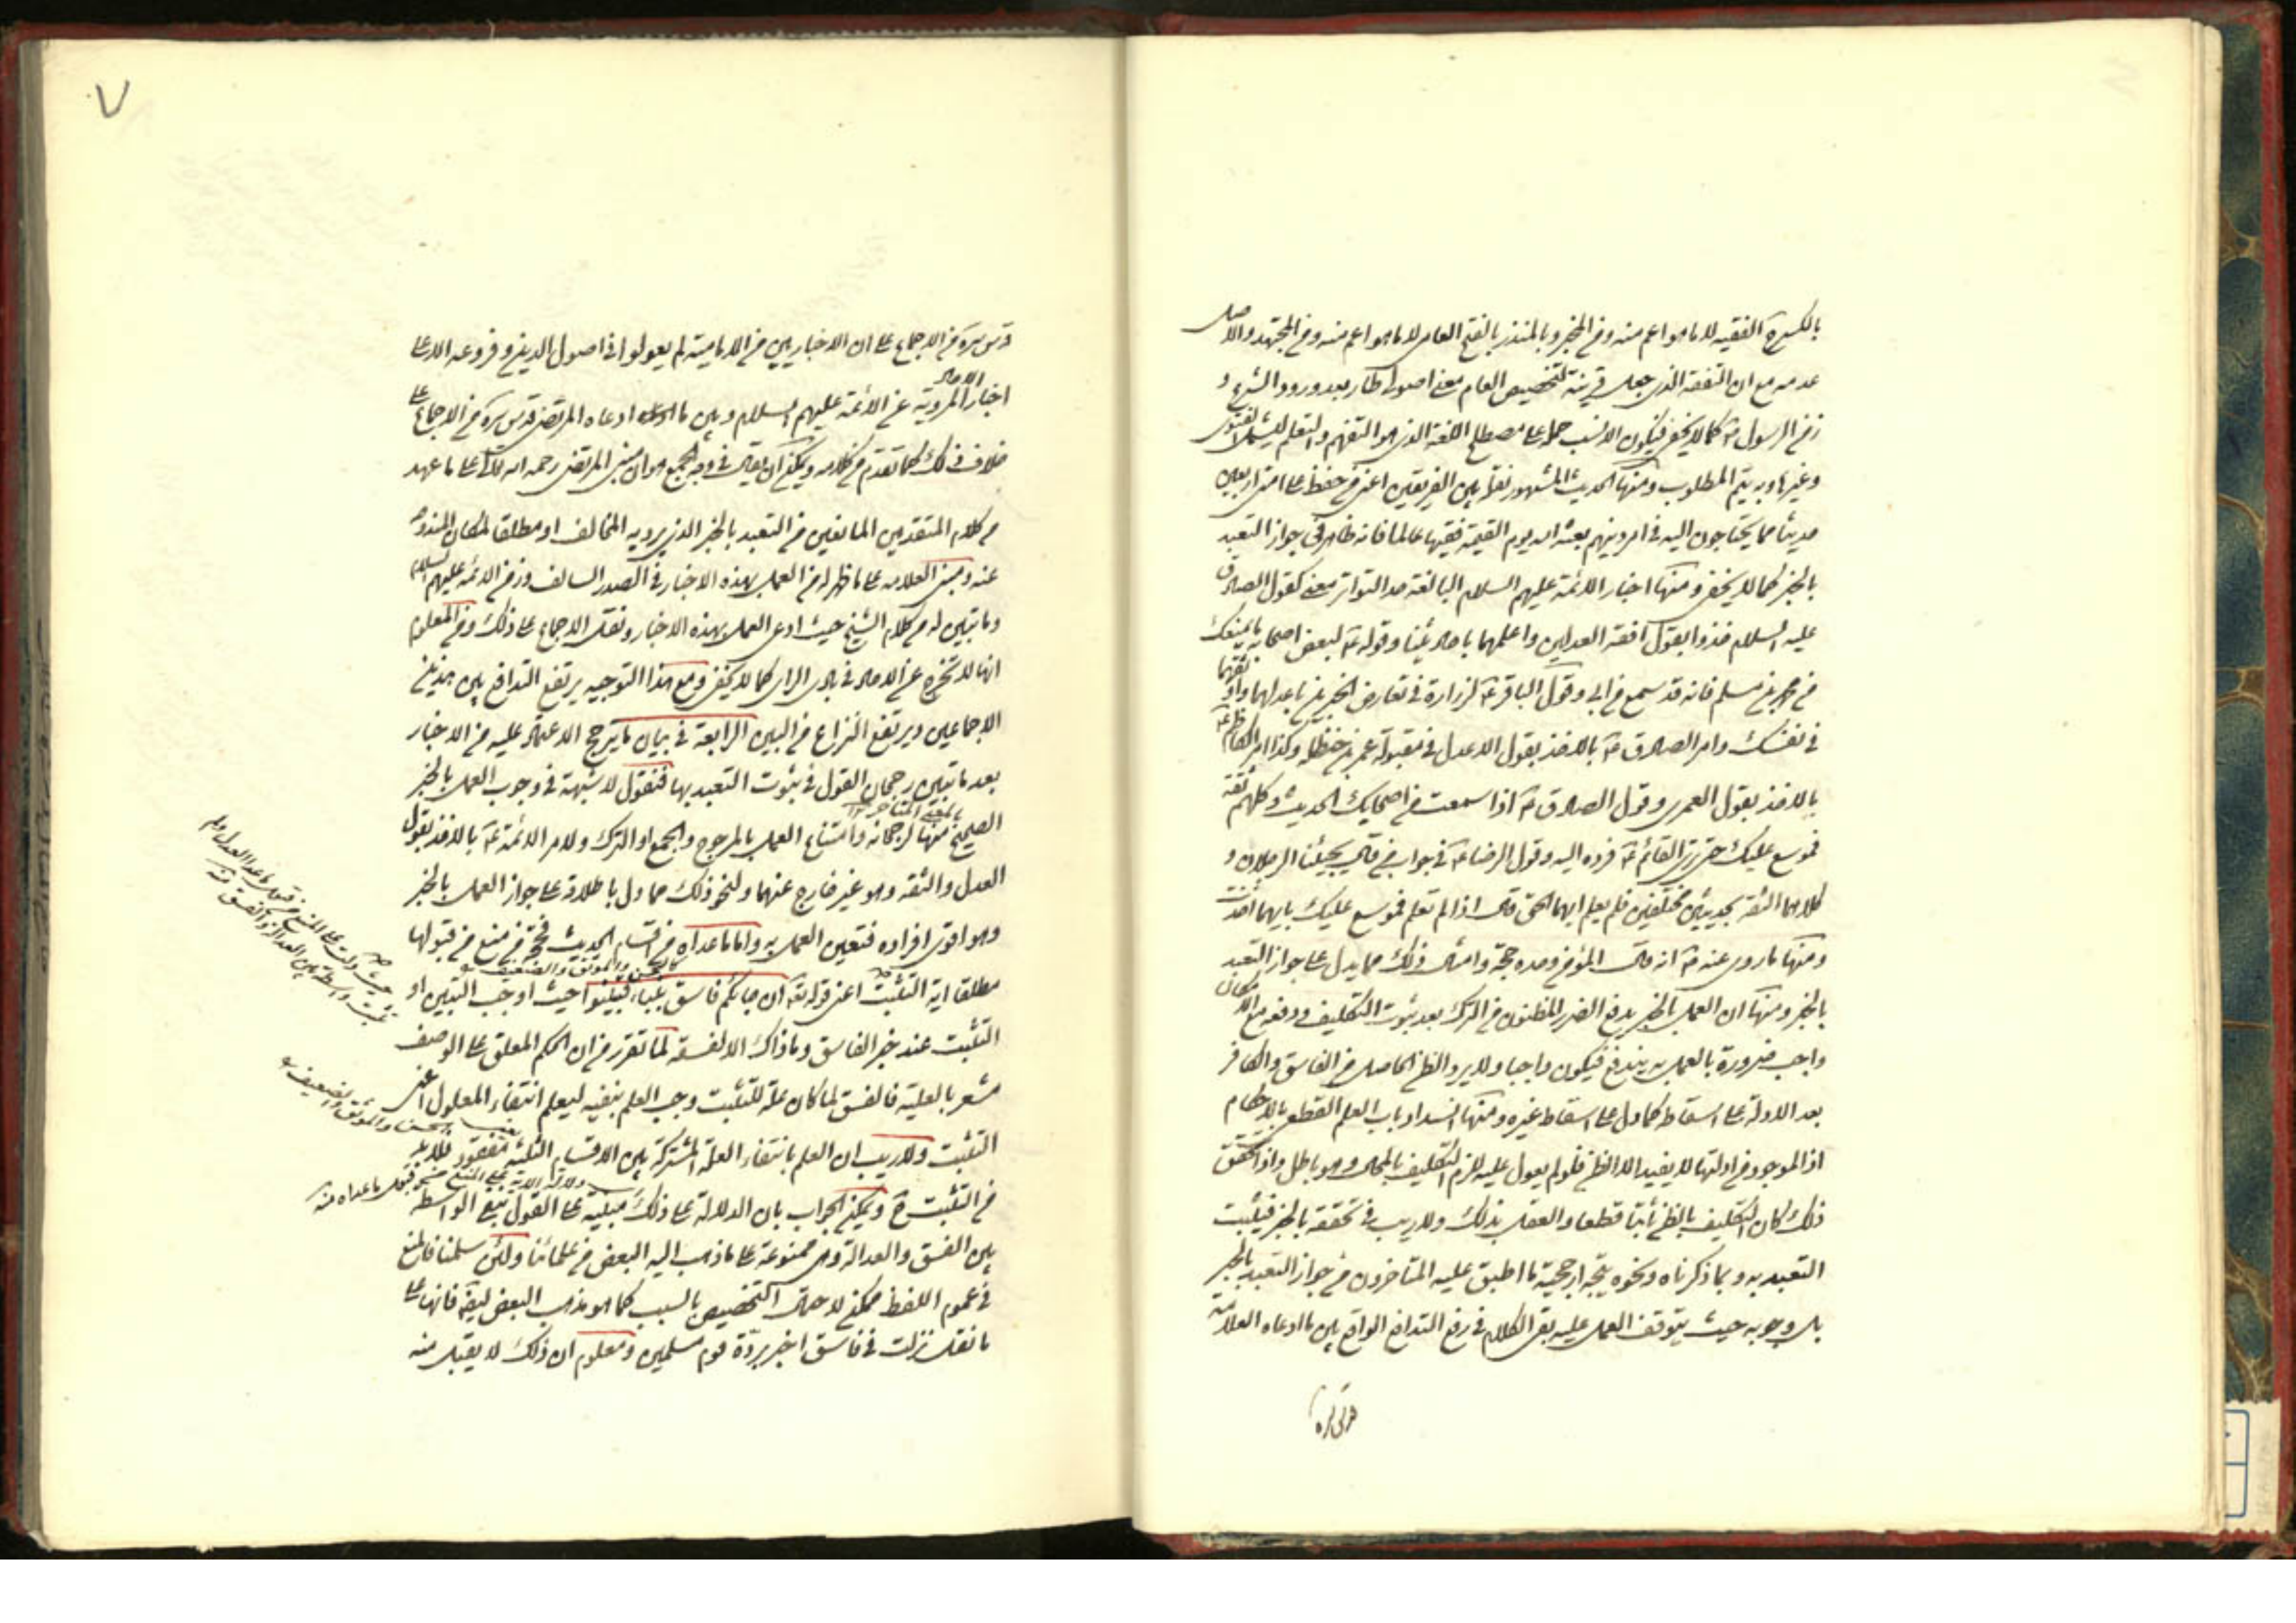 بالكسرة الفقيه لا ما هو اعم منه ومن المخبر وبالمنذر بالفتح العامى لا ما هو اعم منه ومن المجتهد والاصل
عدمه مع ان التفقه الذى جعل قرينة لتخصيص العام معنى اصولى طار بعد ورود الشرع و
زمن الرسول ص كما لا يخفى فيكون الانسب حمله على مصطلح اللغة الذى هو التفهم والتعلم ليشمل الفتوى
وغيرها وبه يتم المطلوب ومنها الحديث المشهور نقله بين الفريقين اعنى من حفظ على امتى اربعين
حديثا مما يحتاجون اليه فى امر دينهم بعثه الله يوم القيمة فقيها عالما فانه ظاهر فى جواز التعبد
بالخبر كما لا يخفى ومنها اخبار الائمة عليهم السلام البالغة حد التواتر معنى كقول الصادق
عليه السلام خذوا بقول افقه العدلين واعلمهما باحاديثنا وقوله ع لبعض اصحابه ما يمنعك
من محمد بن مسلم فانه قد سمع من ابى وقول الباقر ع لزرارة فى تعارض الخبرين خذ باعدلهما واوثقهما
فى نفسك وامر الصادق ع بالاخذ بقول الاعدل فى مقبولة عمر بن حنظلة وكذا امر الكاظم ع
بالاخذ بقول العمرى وقول الصادق ع اذا سمعت من اصحابك الحديث وكلهم ثقة
فموسع عليك حتى ترى القائم ع فرده اليه وقول الرضا ع فى جواب من قال يجيئنا الرجلان و
كلاهما الثقة بحديثين مختلفين فلم يعلم ايهما الحق قال اذا لم تعلم فموسع عليك بايهما اخذت
ومنها ما روى عنه ص انه قال المؤمن وحده حجة وامثال ذلك مما يدل على جواز التعبد
بالخبر ومنها ان العمل بالخبر يدفع الضرر المظنون من الترك بعد ثبوت التكليف ودفعه مع الامكان
واجب ضرورة بالعمل به يندفع فيكون واجبا ولا يرد الظن الحاصل من الفاسق والكافر
بعد الادلة على اسقاطه كما دل على اسقاط غيره ومنها انسداد باب العلم القطعى بالاحكام
اذ الموجود من ادلتها لا يفيد الا الظن فلو لم يعول عليه لزم التكليف بالمحال وهو باطل واذا تحقق
ذلك كان التكليف بالظن ثابتا قطعا والعقل بذلك ولا ريب فى تحققه بالخبر فيثبت
التعبد به وبما ذكرناه ونحوه يتجه ارجحية ما اطبق عليه المتاخرون من جواز التعبد بالخبر
بل وجوبه حيث يتوقف العمل عليه بقى الكلام فى رفع التدافع الواقع بين ما ادعاه العلامة
قدس سره من الاجماع على ان الاخباريين من الامامية لم يعولوا فى اصول الدين وفروعه الا على
اخبار الاحاد المروية عن الائمة عليهم السلام وبين ما ادعاه المرتضى قدس سره من الاجماع على
خلاف ذلك كما تقدم من كلامه ويمكن ان يقال فى وجه الجمع هو ان مبنى المرتضى رحمه الله تعالى على ما عهد
من كلام المتقدمين المانعين من التعبد بالخبر الذى يرويه المخالف او مطلقا لمكان المندوحة
عنه ومبنى العلامه على ما ظهر له من العمل بهذه الاخبار فى الصدر السالف وزمن الائمة عليهم السلام
وما تبين له من كلام الشيخ حيث ادعى العمل بهذه الاخبار ونقل الاجماع على ذلك ومن المعلوم
انها لا تخرج عن الاحاد فى بادى الراى كما لا يخفى ومع هذا التوجيه يرتفع التدافع بين هذين
الاجماعين ويرتفع النزاع من البين الرابعة فى بيان ما يترجح الاعتماد عليه من الاخبار
بعد ما تبين رجحان القول فى ثبوت التعبد بها فنقول لا شبهة فى وجوب العمل بالخبر
بالمعنى المتاخر
الصحيح منها لرجحانه وامتناع العمل بالمرجوح والجمع او الترك ولامر الائمة ع بالاخذ بقول
العدل والثقة وهو غير خارج عنهما ولنحو ذلك مما دل باطلاقه على جواز العمل بالخبر
وهو اقوى افراده فتعين العمل به واما ما عداه من اقسام الحديث فحجة من منع من قبولها
كالحسن والموثق والضعيف
مطلقا اية التثبت اعنى قوله تعالى ان جائكم فاسق بنباء فتبينوا حيث اوجب التبين او
التثبت عند خبر الفاسق وما ذاك الا لفسقه لما تقرر من ان الحكم المعلق على الوصف
مشعر بالعلية فالفسق لما كان علة للتثبت وجب العلم بنفيه ليعلم انتفاء المعلول اعنى
التثبت ولا ريب ان العلم بانتفاء العلة المشتركة بين الاقسام الثلثة مفقود فلا بد
من التثبت ح ويمكن الجواب بان الدلالة على ذلك مبنية على القول بنفى الواسطه
بين الفسق والعدالة وهى ممنوعة على ما ذهب اليه البعض من علمائنا ولئن سلمنا فالمنع
فى عموم اللفظ ممكن لاحتمال التخصيص بالسبب كما هو مذهب البعض ايضا فانها على
ما نقل نزلت فى فاسق اخبر بردة قوم مسلمين ومعلوم ان ذلك لا يقبل منه
قدس سره
٧